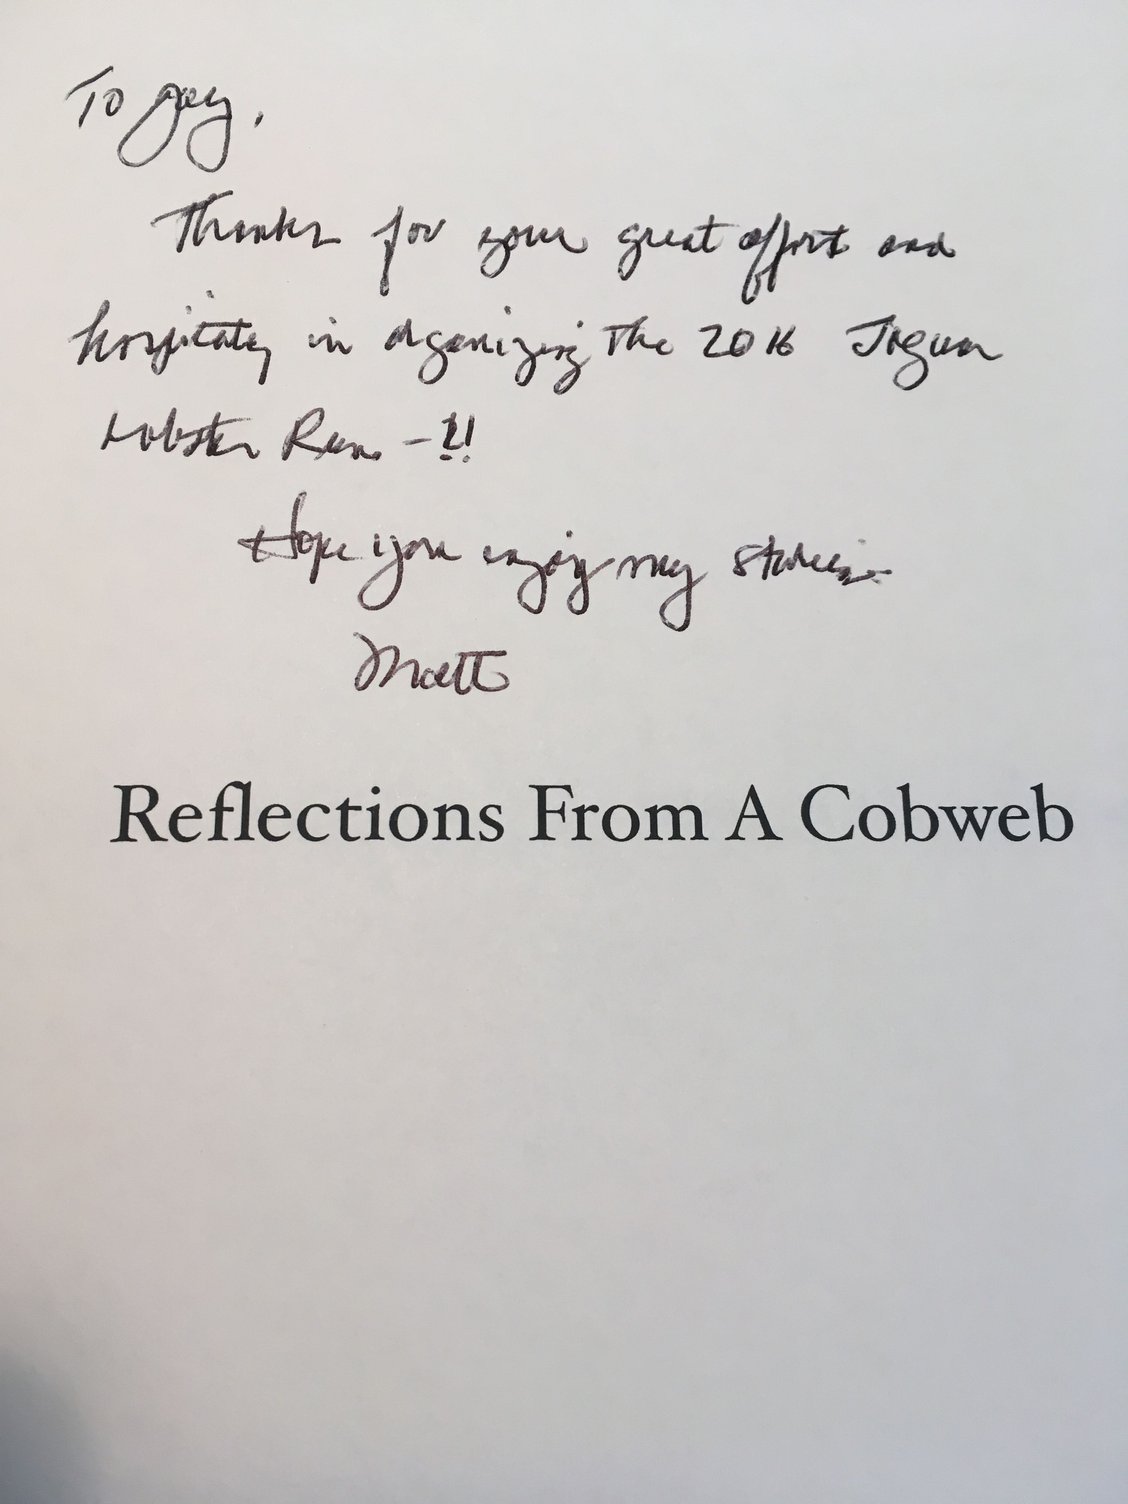 To Joey,
Thanks for your great effort and
hospitality in organizing the 2016 Jaguar
Lobster Run -!!
Hope you enjoy my stories-
Matt
Reflections From A Cobweb